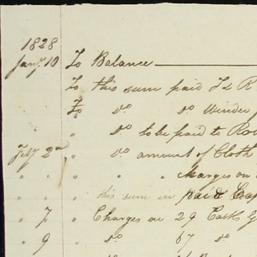 1828
Jany. 10 To Balance
To this sum paid J & R
To do do Winder
" do to be paid to Ro
Feby 2nd " do amount of Cloth
" " " " charges on
" " this sum in paid Cap
" 7 " Charges on 29 Casks G
" 9 " do 67 do